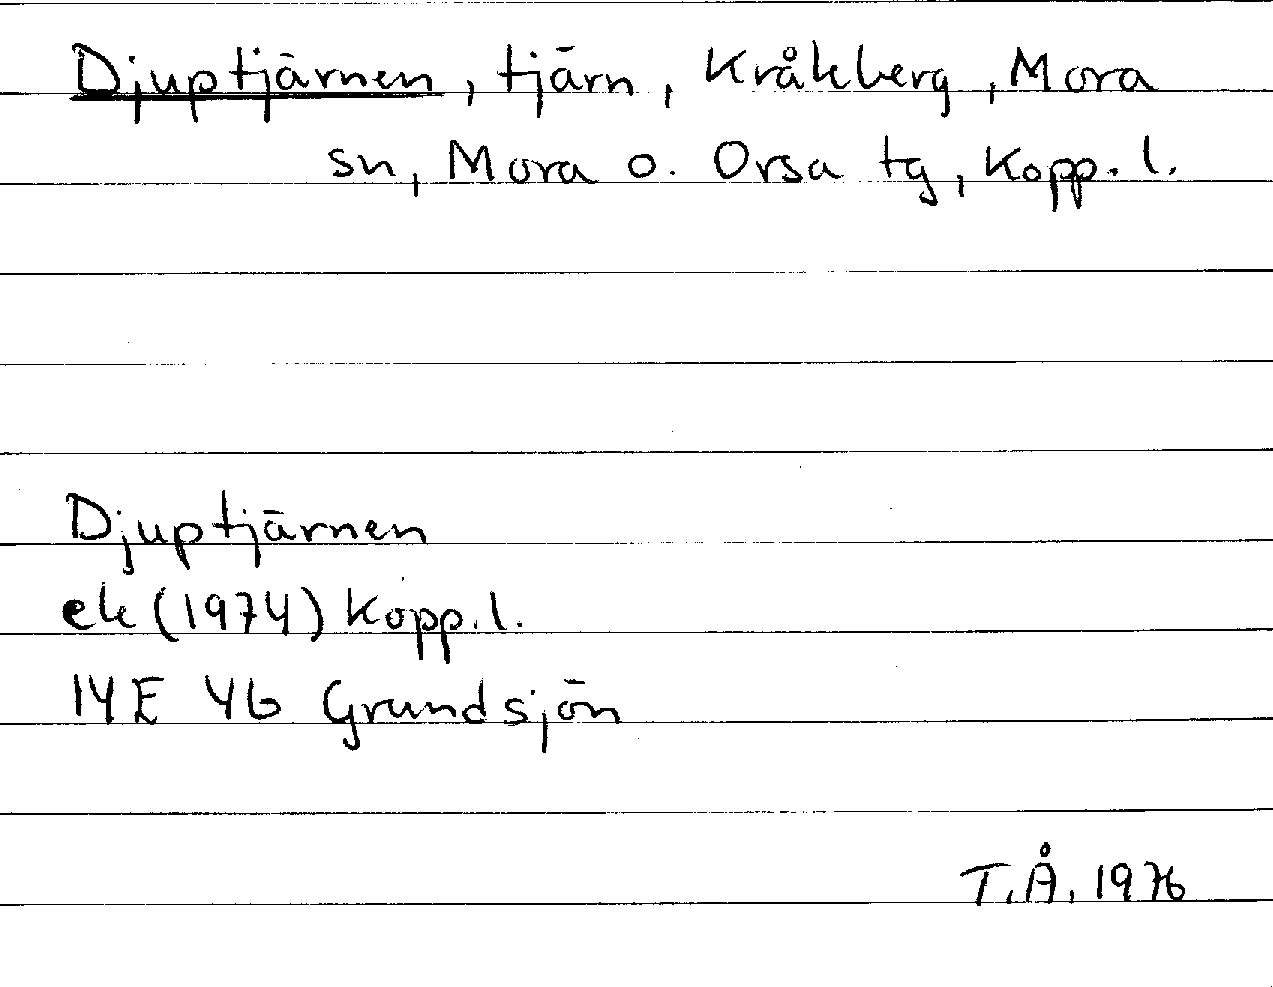 Djuptjärnen, tjärn, Kråkberg, Mora
sn, Mora o. Orsa tg, Kopp. l.
Djuptjärnen
ek (1974) Kopp. l.
14E 4b Grundsjön
T.Å. 1976